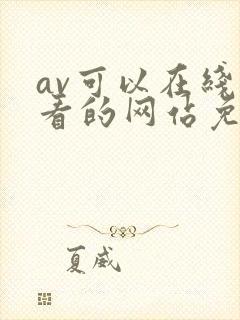 av可以在线
看的网站免
夏威